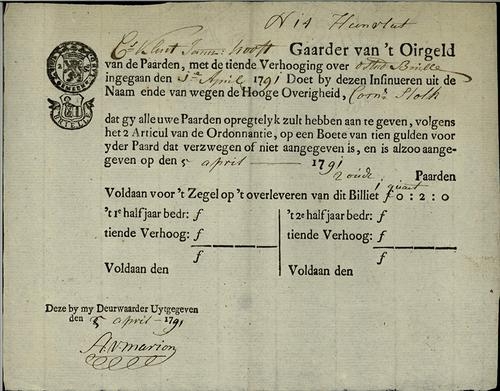 N 14 Heenvliet
Gaarder van 't Oirgeld
van de Paarden, met de tiende Verhooging over Brille
ingegaan den 1 April 1791 Doet by dezen Insinueren uit de
Naam ende van wegen de Hooge Overigheid, Corns Stolk
dat gy alle uwe Paarden opregtelyk zult hebben aan te geven, volgens
het 2 Articul van de Ordonnantie, op een Boete van tien gulden voor
yder Paard dat verzwegen of niet aangegeven is, en is alzoo aange-
geven op den 5 april 1791
2 oude Paarden
Voldaan voor 't Zegel op 't overleveren van dit Billiet f 0:2:0
't 1e half jaar bedr: f
tiende Verhoog: f
f
Voldaan den
't 2e half jaar bedr: f
tiende Verhoog: f
f
Voldaan den
Deze by my Deurwaarder Uytgegeven
den 5 april 1791
A.V. marion